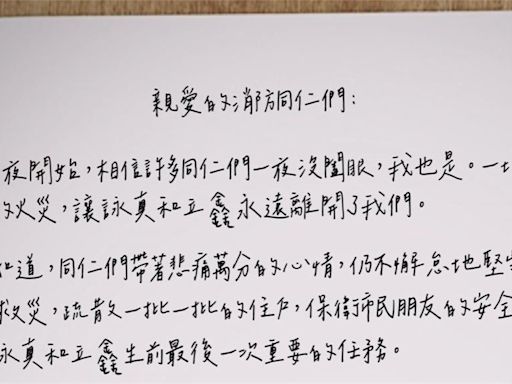 親愛的消防同仁們：
夜開始，相信許多同仁們一夜沒闔眼，我也是。一
的火災，讓詠真和立鑫永遠離開了我們。
知道，同仁們帶著悲痛萬分的心情，仍不懈怠地堅
救災，疏散一批一批的住戶，保衛市民朋友的安全
永真和立鑫生前最後一次重要的任務。